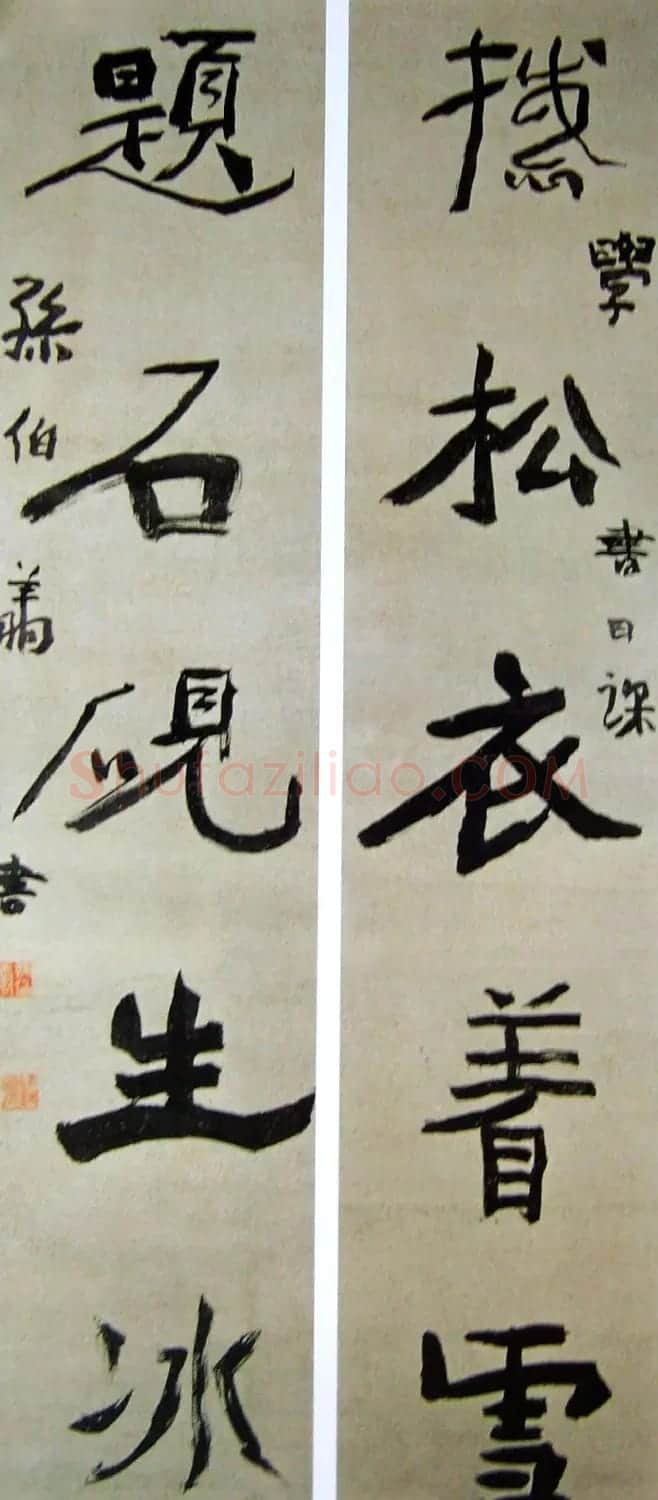 撼松衣着雪
學書日課
題石硯生冰
孫伯翥書
Shufaziliao.COM